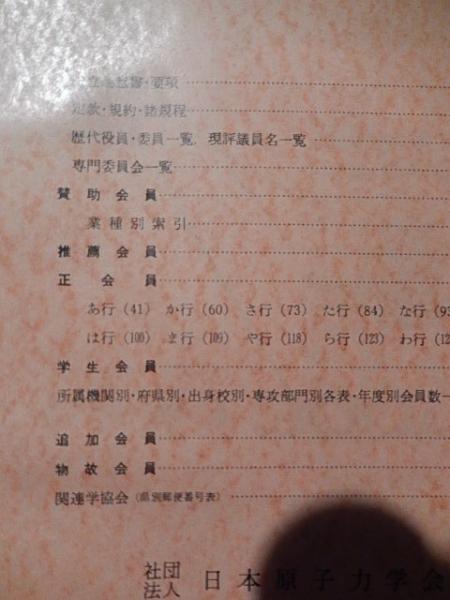 設立趣意書・要項
定款・規約・諸規程
歴代役員・委員一覧 現評議員名一覧
専門委員会一覧
賛助会員
業種別索引
推薦会員
正会員
あ行(41) か行(60) さ行(73) た行(84) な行(93
は行(100) ま行(109) や行(118) ら行(123) わ行(12
学生会員
所属機関別・府県別・出身校別・専攻部門別各表・年度別会員数
追加会員
物故会員
関連学協会(県別郵便番号表)
社団法人 日本原子力学会